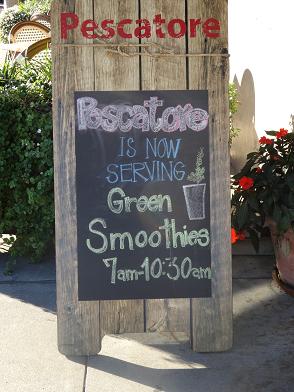 Pescatore
Pescatore
IS NOW
SERVING
Green
Smoothies
7am-10:30am